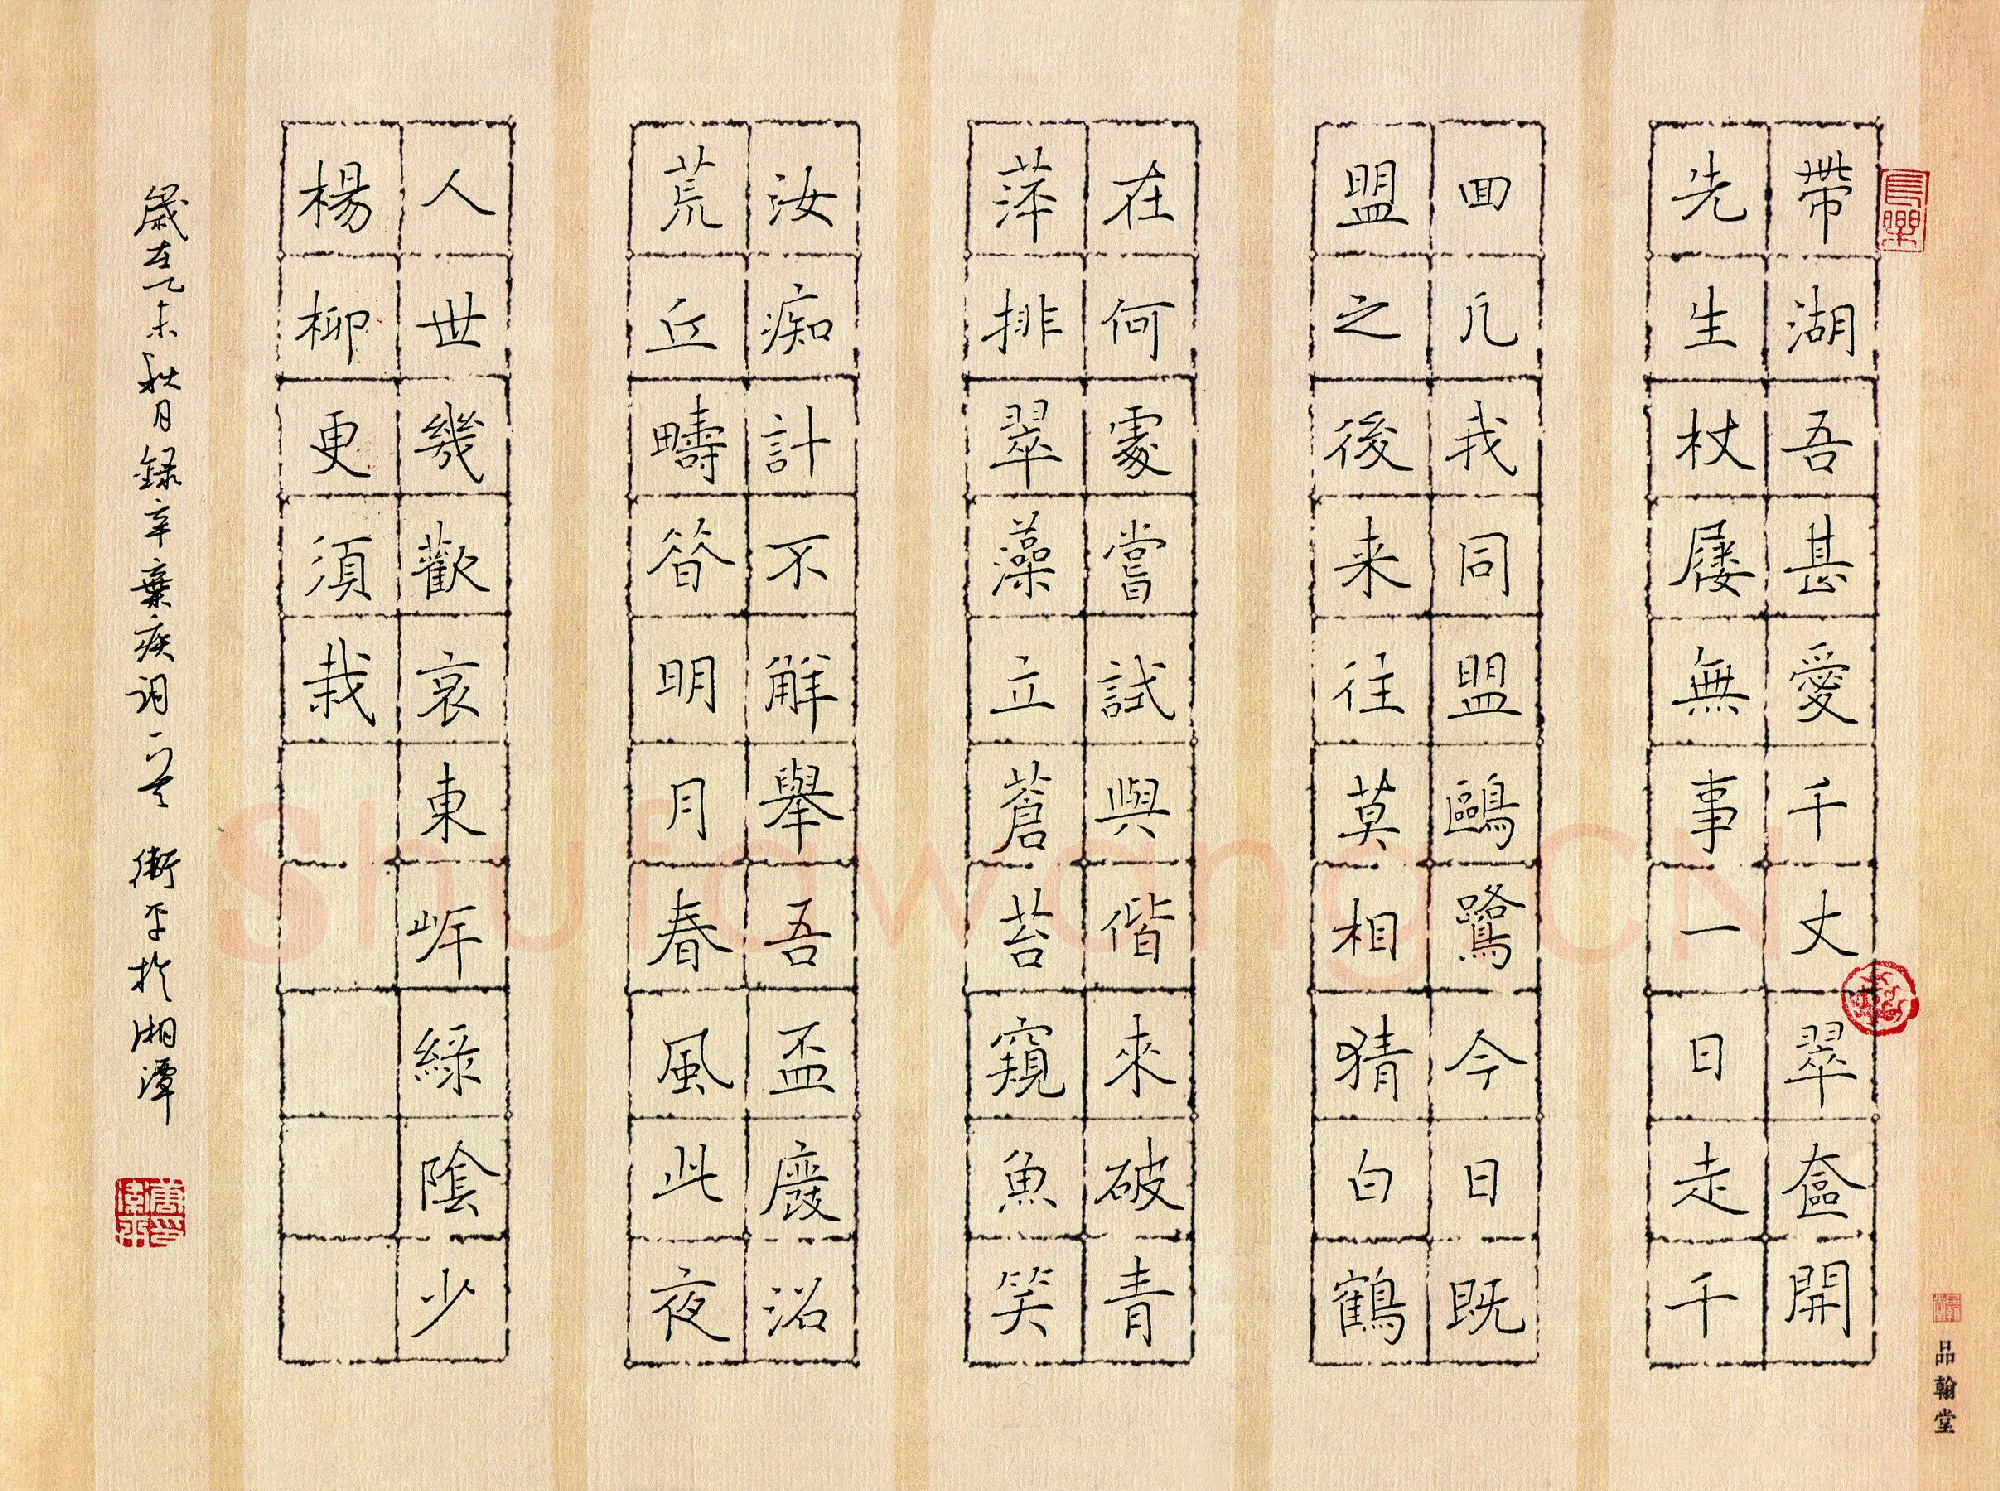 帶湖吾甚愛千丈翠奩開
先生杖屨無事一日走千
回凡我同盟鷗鷺今日既
盟之後来往莫相猜白鶴
在何處嘗試與偕來破青
萍排翠藻立蒼苔窺魚笑
汝痴計不解舉吾盃廢沼
荒丘疇昔明月春風此夜
人世幾歡哀東岸綠陰少
楊柳更須栽
歲在乙未秋月録辛棄疾詞一首 衛平於湘潭
品翰堂
Shufawang.CN